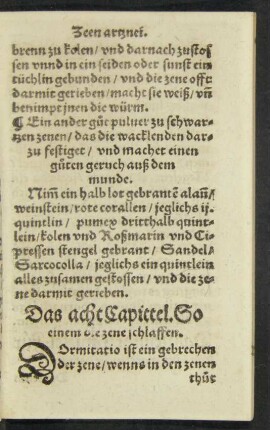 Zeen artznei.
brenn zu kolen/ vnd darnach zustos
sen vnnd in ein seiden oder sunst ein
tüchlin gebunden/ vnd die zene offt
darmit gerieben/ macht sie weiß/ vñ
benimpt jnen die würm.
¶ Ein ander gůt puluer zu schwar-
tzen zenen/ das die wacklenden dar-
zu festiget/ vnd machet einen
gůten geruch auß dem
munde.
Nim̃ ein halb lot gebrantẽ alaun/
weinstein/ rote corallen/ jeglichs ij.
quintlin/ pumex dritthalb quint-
lein/ kolen vnd Roßmarin vnd Ci-
pressen stengel gebrant/ Sandel/
Sarcocolla/ jeglichs ein quintlein
alles zusamen gestossen/ vnd die ze-
ne darmit gerieben.
Das acht Capittel. So
einem die zene schlaffen.
Dormitatio ist ein gebrechen
der zene/ wenns in den zenen
thůt